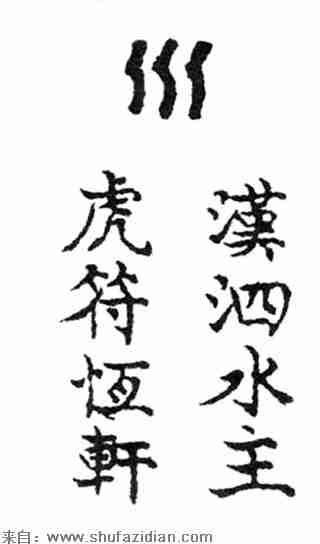 巛
漢泗水主
虎符恆軒
来自：www.shufazidian.com